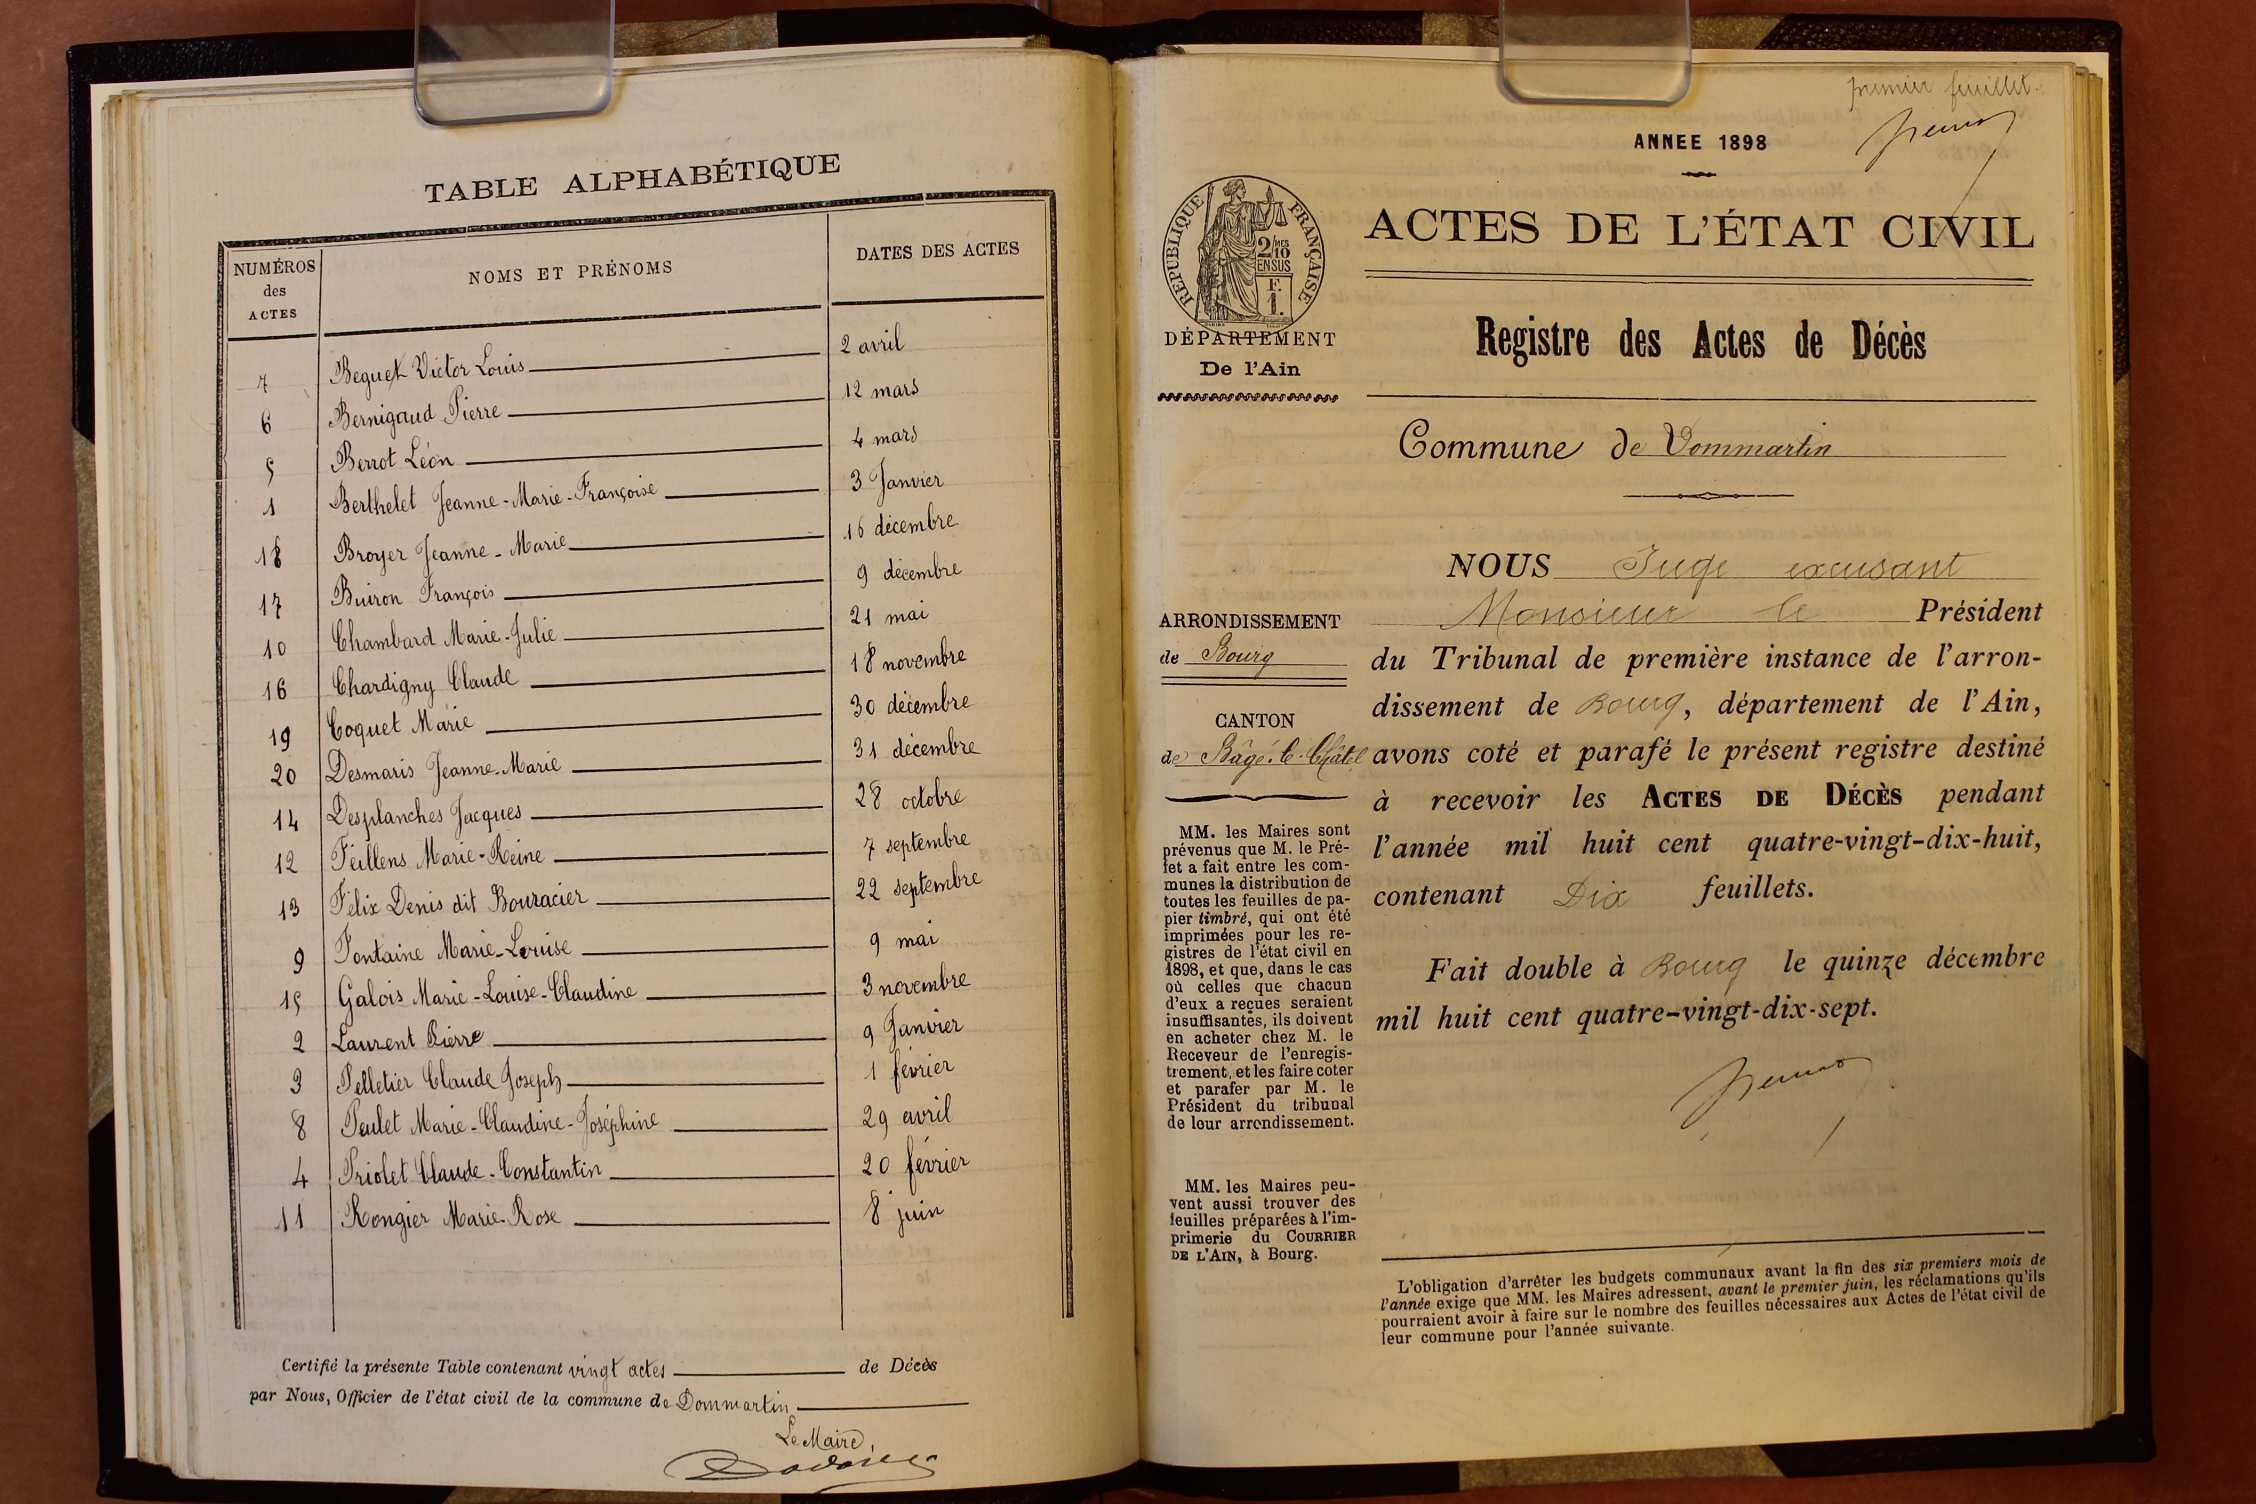 TABLE ALPHABÉTIQUE
NUMÉROS des ACTES
NOMS ET PRÉNOMS
DATES DES ACTES
7 Beguet Victor Louis 2 avril
6 Bernigaud Pierre 12 mars
5 Berrot Léon 4 mars
1 Berthelet Jeanne-Marie-Françoise 3 Janvier
18 Broyer Jeanne-Marie 16 décembre
17 Buiron François 9 décembre
10 Chambard Marie-Julie 21 mai
16 Chardigny Claude 18 novembre
19 Coquet Marie 30 décembre
20 Desmaris Jeanne-Marie 31 décembre
14 Desplanches Jacques 28 octobre
12 Feillens Marie-Reine 7 septembre
13 Félix Denis dit Bouracier 22 septembre
9 Fontaine Marie-Louise 9 mai
15 Galois Marie-Louise-Claudine 3 novembre
2 Laurent Pierre 9 Janvier
3 Pelletier Claude Joseph 1 février
8 Peulet Marie-Claudine-Joséphine 29 avril
4 Priolet Claude-Constantin 20 février
11 Rongier Marie-Rose 8 juin
Certifié la présente Table contenant vingt actes de Décès
par Nous, Officier de l'état civil de la commune de Dommartin
Le Maire,
premier feuillet.
ANNEE 1898
RÉPUBLIQUE FRANÇAISE
2/10 MES
EN SUS
F.
1.
DÉPARTEMENT
De l'Ain
ACTES DE L'ÉTAT CIVIL
Registre des Actes de Décès
Commune de Dommartin
ARRONDISSEMENT
de Bourg
CANTON
de Bâgé-le-Châtel
MM. les Maires sont
prévenus que M. le Pré-
fet a fait entre les com-
munes la distribution de
toutes les feuilles de pa-
pier timbré, qui ont été
imprimées pour les re-
gistres de l'état civil en
1898, et que, dans le cas
où celles que chacun
d'eux a reçues seraient
insuffisantes, ils doivent
en acheter chez M. le
Receveur de l'enregis-
trement, et les faire coter
et parafer par M. le
Président du tribunal
de leur arrondissement.
MM. les Maires peu-
vent aussi trouver des
feuilles préparées à l'im-
primerie du COURRIER
DE L'AIN, à Bourg.
NOUS Juge excusant
Monsieur le Président
du Tribunal de première instance de l'arron-
dissement de Bourg, département de l'Ain,
avons coté et parafé le présent registre destiné
à recevoir les ACTES DE DÉCÈS pendant
l'année mil huit cent quatre-vingt-dix-huit,
contenant Dix feuillets.
Fait double à Bourg le quinze décembre
mil huit cent quatre-vingt-dix-sept.
L'obligation d'arrêter les budgets communaux avant la fin des six premiers mois de
l'année exige que MM. les Maires adressent, avant le premier juin, les réclamations qu'ils
pourraient avoir à faire sur le nombre des feuilles nécessaires aux Actes de l'état civil de
leur commune pour l'année suivante.